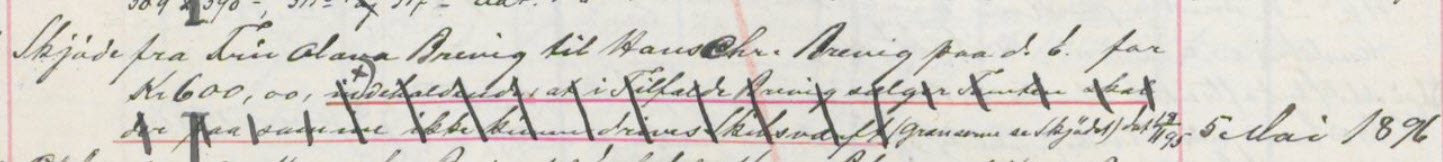 Skjøde fra Frü Olava Brevig til Hans Chr. Brevig paa d. b. for
Kr 600,00, inddeholdende, at i Tilfælde Brevig sælger Tomten skal
der paa samme ikke kunne drives Skibsværft (Grænserne se skjødet) dat.
5 Mai 1896